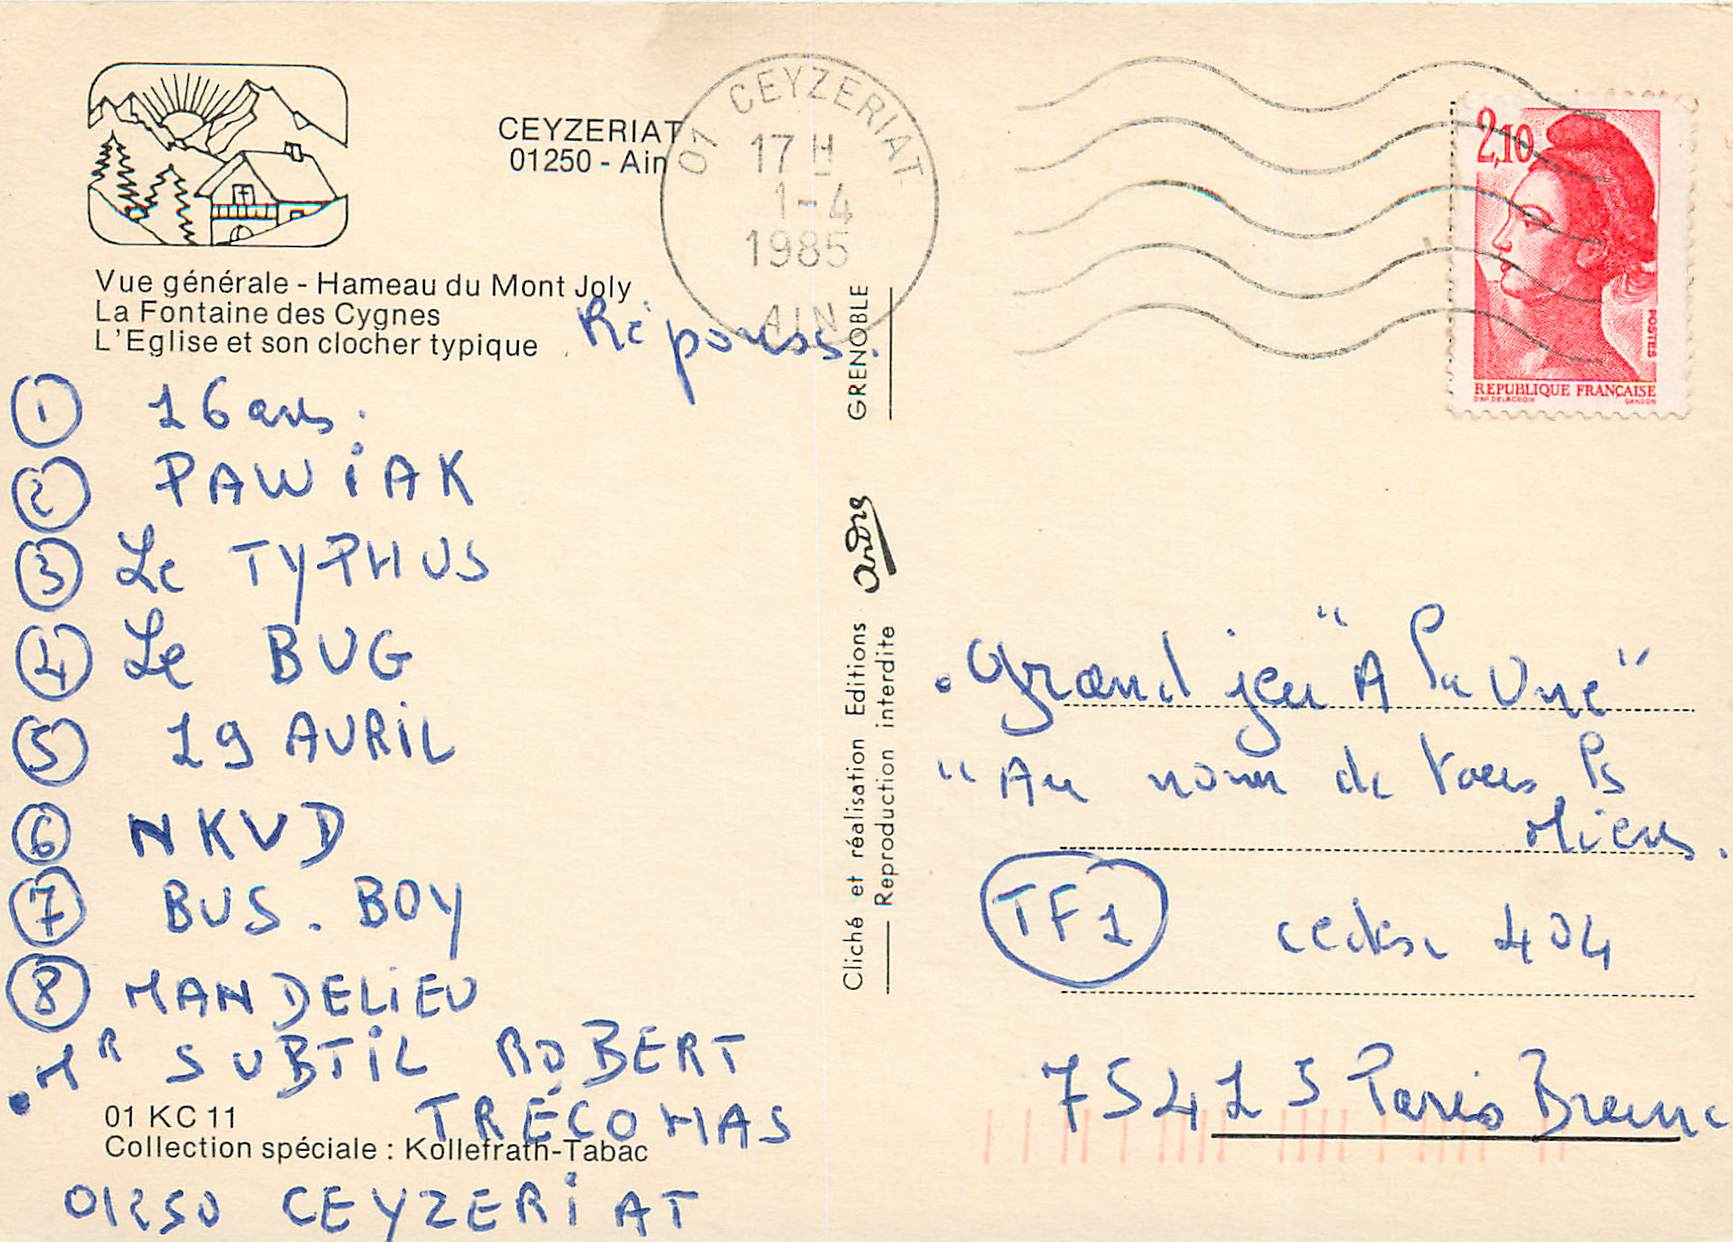 CEYZERIAT
01250 - Ain
Vue générale - Hameau du Mont Joly
La Fontaine des Cygnes
L'Eglise et son clocher typique
Réponses.
① 16 ans.
② PAWiAK
③ Le TYPHUS
④ Le BUG
⑤ 19 AVRiL
⑥ NKVD
⑦ BUS. BOY
⑧ MANDELiEU
. MR SUBTiL ROBERT
TRÉCOMAS
01250 CEYZERiAT
01 KC 11
Collection spéciale : Kollefrath-Tabac
Cliché et réalisation Editions andré GRENOBLE
Reproduction interdite
01 CEYZERIAT
17 H
1-4
1985
AIN
2,10
POSTES
REPUBLIQUE FRANÇAISE
D'AP. DELACROIX GANDON
. Grand jeu "A la Une"
"Au nom de tous les
Miens.
TF1 cedex 404
75415 Paris Brune